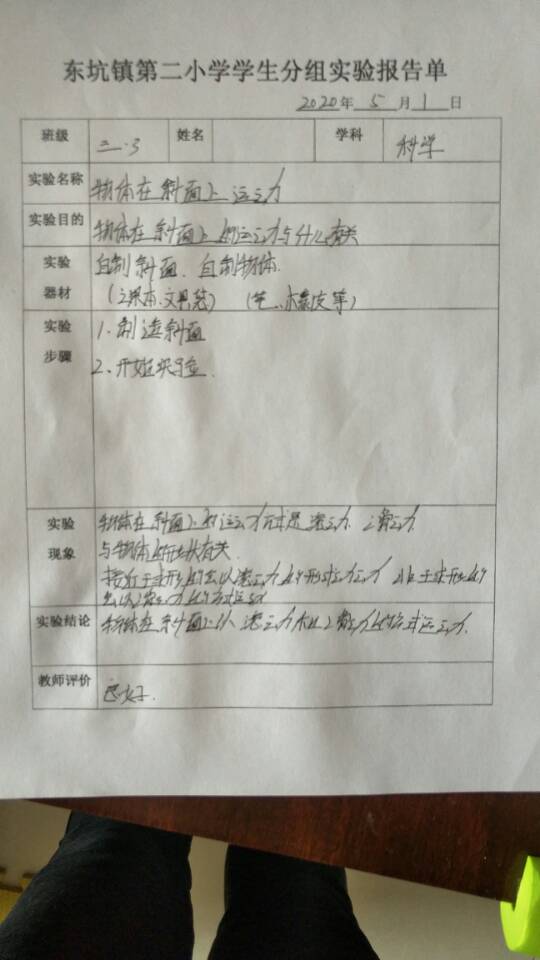 东坑镇第二小学学生分组实验报告单
2020年 5 月 1 日
班级 三.3 姓名 学科 科学
实验名称 物体在斜面上运动
实验目的 物体在斜面上的运动与什么有关
实验器材 自制斜面、自制物体.
(课本、文具盒) (笔、橡皮等)
实验步骤 1.制造斜面
2.开始实验.
实验现象 物体在斜面上的运动方式是滚动、滑动
与物体的形状有关.
接近于球形的会以滚动的形式运动 非于球形的
会以滑动的方式运动
实验结论 物体在斜面上以滚动和滑动的方式运动.
教师评价 良好.